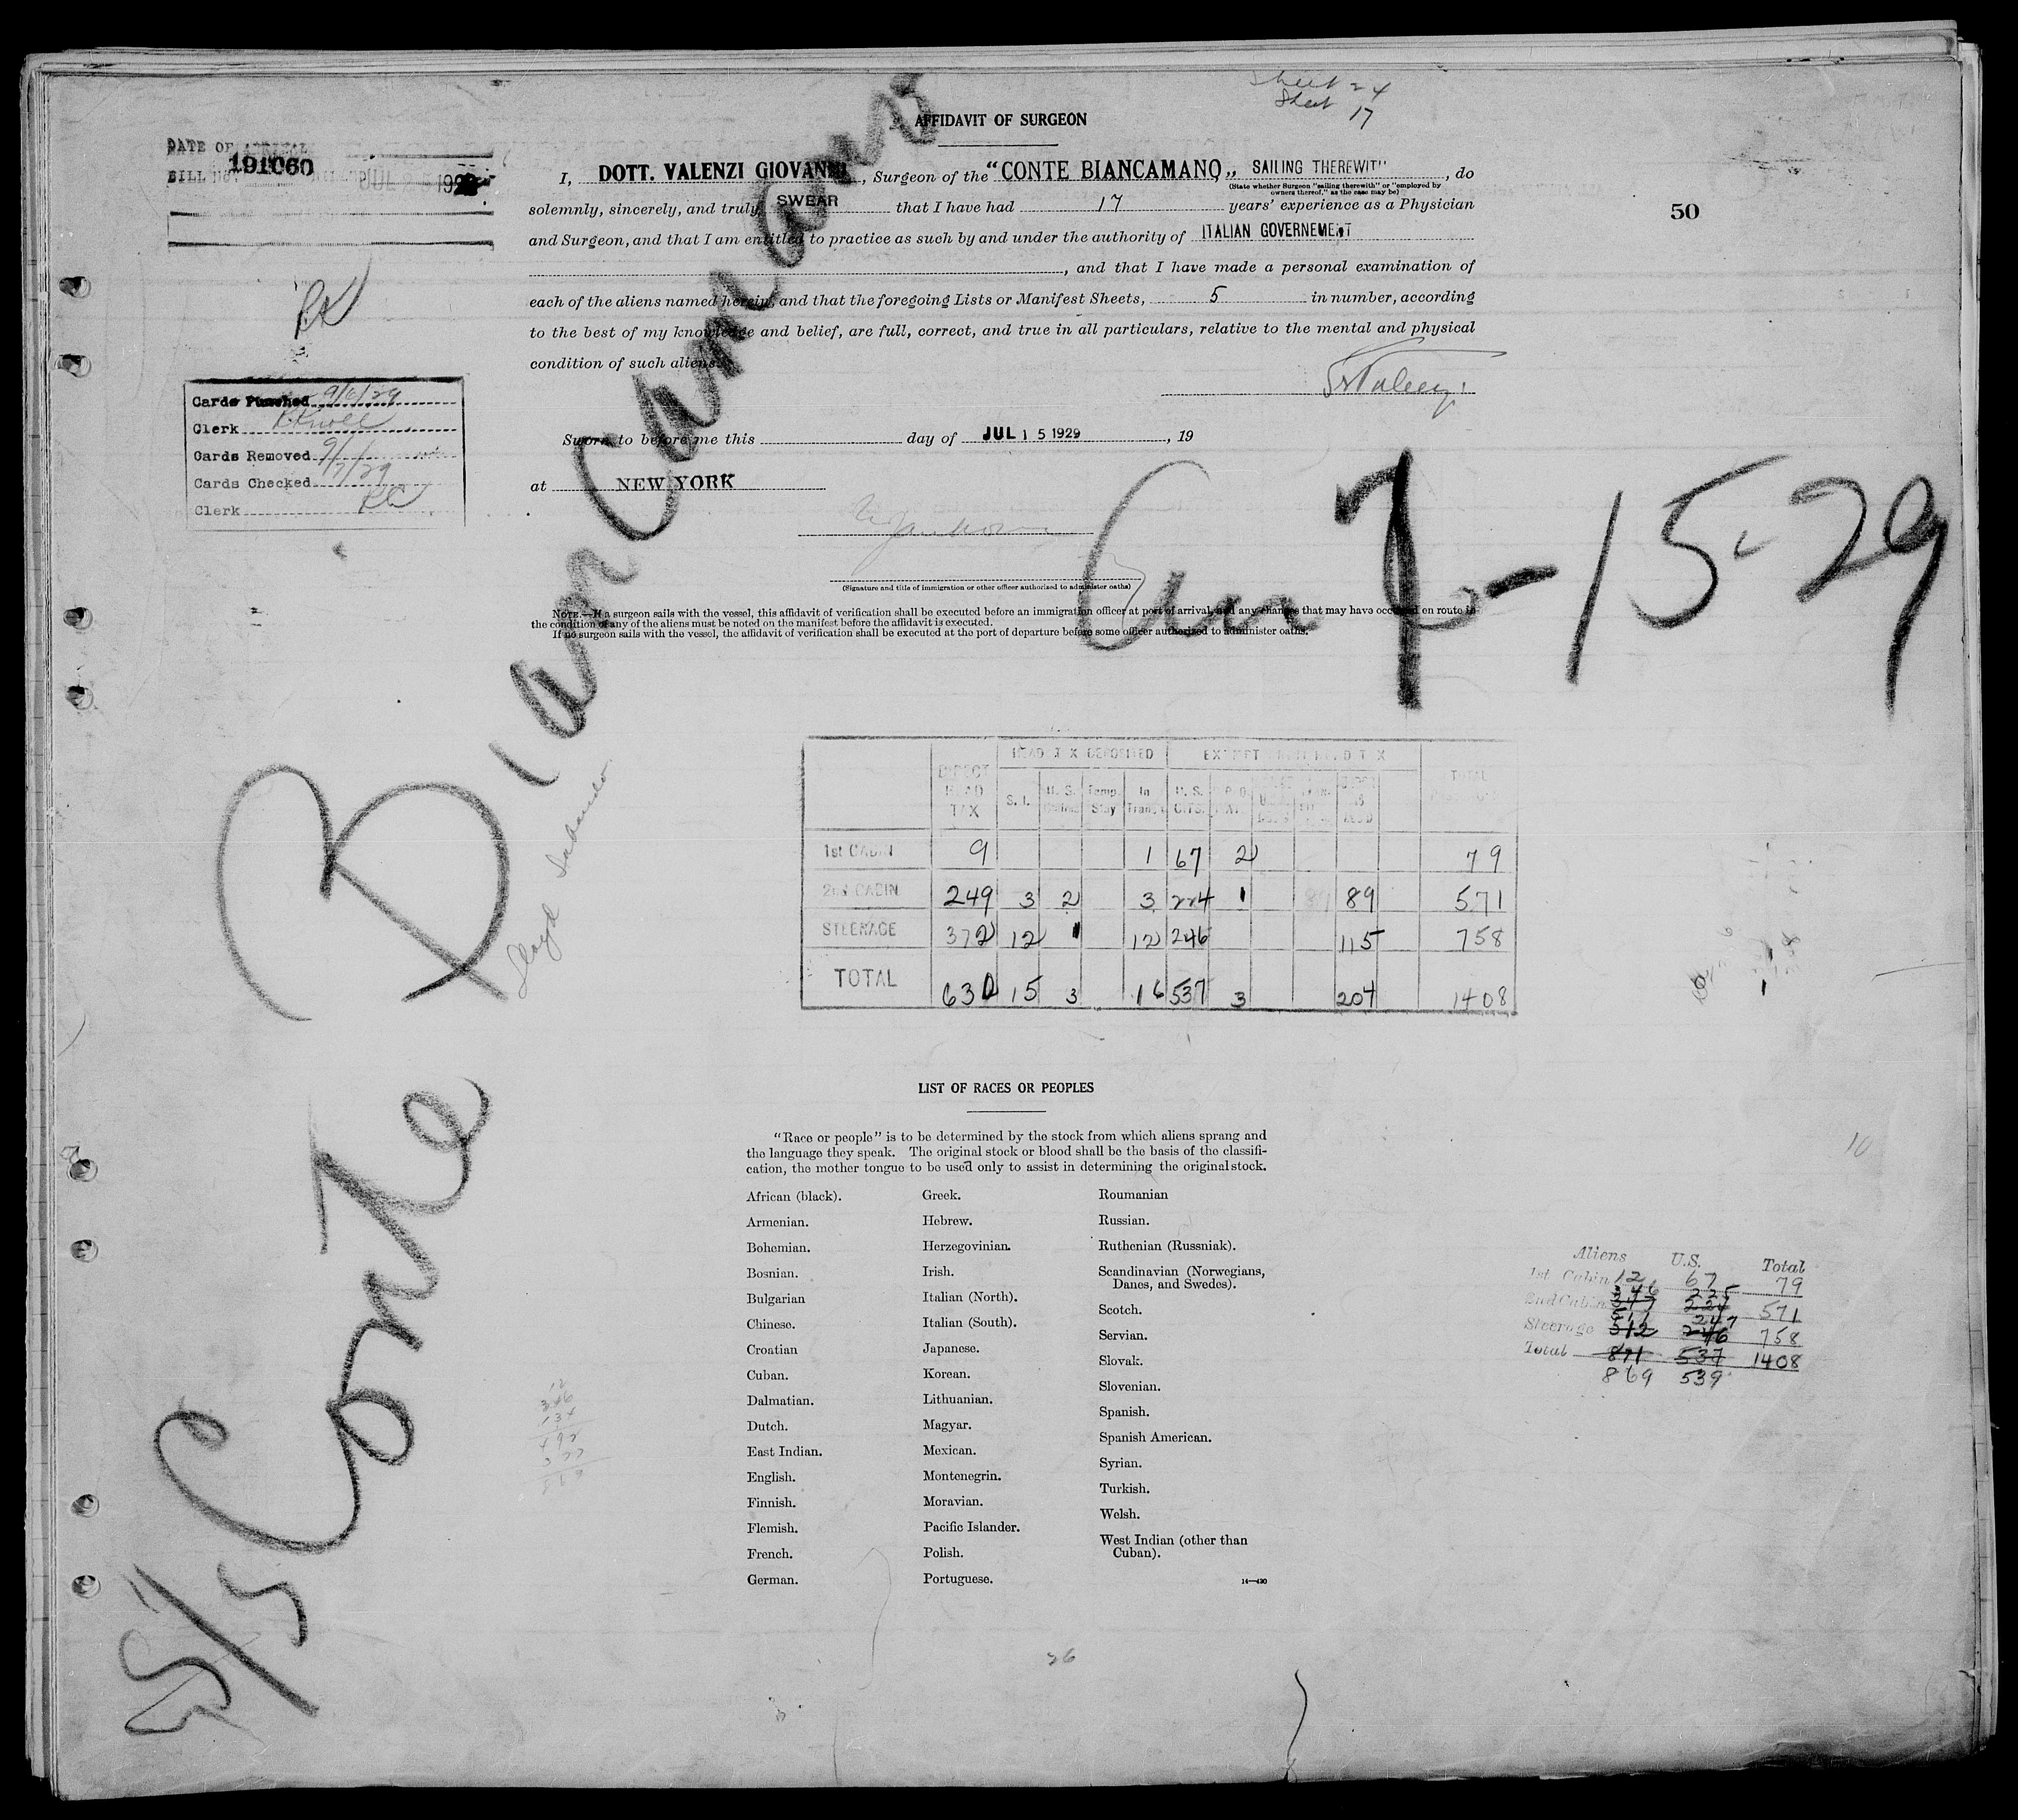 Sheet 24
Sheet 17
AFFIDAVIT OF SURGEON
DATE OF ARRIVAL
BILL NO.
191060
I, DOTT. VALENZI GIOVANNI, Surgeon of the "CONTE BIANCAMANO,, SAILING THEREWITH, do
(State whether Surgeon "sailing therewith" or "employed by
owners thereof," as the case may be)
solemnly, sincerely, and truly SWEAR that I have had 17 years' experience as a Physician
50
and Surgeon, and that I am entitled to practice as such by and under the authority of ITALIAN GOVERNEMENT
, and that I have made a personal examination of
each of the aliens named herein, and that the foregoing Lists or Manifest Sheets, 5 in number, according
to the best of my knowledge and belief, are full, correct, and true in all particulars, relative to the mental and physical
condition of such aliens.
Cards Punched 9/6/29
Clerk
Cards Removed 9/
Cards Checked 9/7/29
Clerk
Sworn to before me this day of JUL 15 1929, 19
at NEW YORK
(Signature and title of immigration or other officer authorized to administer oaths)
NOTE.—If a surgeon sails with the vessel, this affidavit of verification shall be executed before an immigration officer at port of arrival, and any changes that may have occurred on route in
the condition of any of the aliens must be noted on the manifest before the affidavit is executed.
If no surgeon sails with the vessel, the affidavit of verification shall be executed at the port of departure before some officer authorized to administer oaths.
7-15-29
S/S Conte Biancamano
Lloyd Sabaudo
HEAD TAX DEPOSITED EXEMPT FROM HEAD TAX
DIRECT HEAD TAX S. I. U. S. Temp. Stay In Transit U. S. CITS. TOTAL
1st CABIN 9 1 67 2 79
2nd CABIN 249 3 2 3 224 1 89 571
STEERAGE 372 12 1 12 246 115 758
TOTAL 630 15 3 16 537 3 204 1408
LIST OF RACES OR PEOPLES
"Race or people" is to be determined by the stock from which aliens sprang and
the language they speak. The original stock or blood shall be the basis of the classifi-
cation, the mother tongue to be used only to assist in determining the original stock.
African (black).
Armenian.
Bohemian.
Bosnian.
Bulgarian
Chinese.
Croatian
Cuban.
Dalmatian.
Dutch.
East Indian.
English.
Finnish.
Flemish.
French.
German.
Greek.
Hebrew.
Herzegovinian.
Irish.
Italian (North).
Italian (South).
Japanese.
Korean.
Lithuanian.
Magyar.
Mexican.
Montenegrin.
Moravian.
Pacific Islander.
Polish.
Portuguese.
Roumanian
Russian.
Ruthenian (Russniak).
Scandinavian (Norwegians,
Danes, and Swedes).
Scotch.
Servian.
Slovak.
Slovenian.
Spanish.
Spanish American.
Syrian.
Turkish.
Welsh.
West Indian (other than
Cuban).
14—430
Aliens U.S. Total
1st Cabin 12 67 79
346 225
2nd Cabin 347 224 571
511 247
Steerage 512 246 758
Total 871 537 1408
869 539
10
26